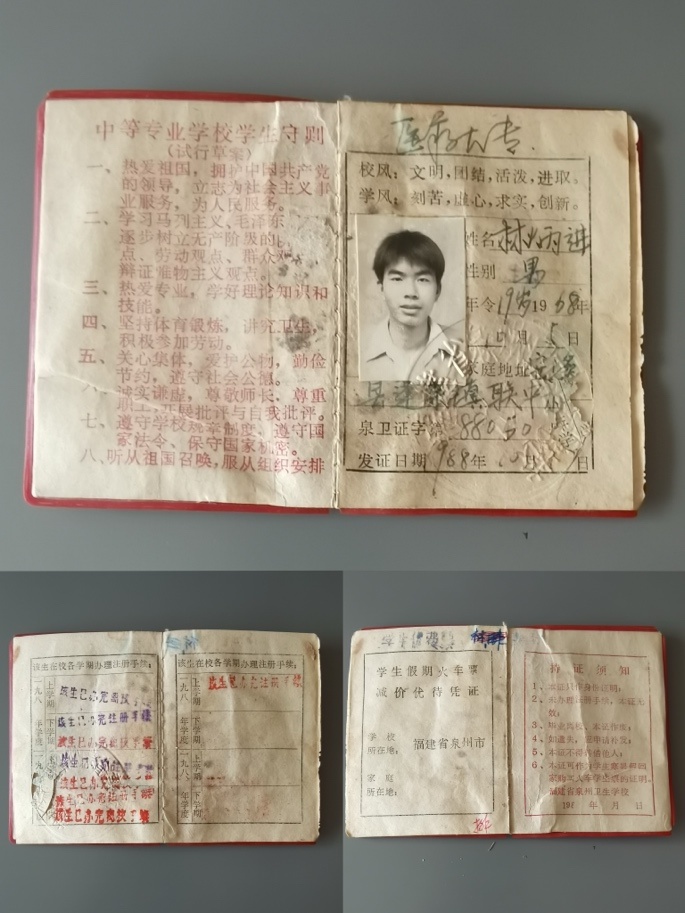 中等专业学校学生守则
（试行草案）
一、热爱祖国，拥护中国共产党
的领导，立志为社会主义事
业服务，为人民服务。
二、学习马列主义、毛泽东
逐步树立无产阶级的
点、劳动观点、群众观
辩证唯物主义观点。
三、热爱专业，学好理论知识和
技能。
四、坚持体育锻炼，讲究卫生，
积极参加劳动。
五、关心集体，爱护公物，勤俭
节约，遵守社会公德。
六、诚实谦虚，尊敬师长，尊重
职工，开展批评与自我批评。
七、遵守学校规章制度、遵守国
家法令、保守国家机密。
八、听从祖国召唤，服从组织安排
医疗大专.
校风：文明，团结，活泼，进取。
学风：刻苦，虚心，求实，创新。
姓名 林炳进
性别 男
年令 19岁 1968年
月5日
家庭地址
县 镇联中
泉卫证字第 880 号
发证日期 1988年10月 日
该生在校各学期办理注册手续：
一九八 年学度
上学期
下学期
该生已办完离校手续
该生已办完注册手续
该生已办完离校手续
该生已办完
该生已办完离校手续
该生已办完注册手续
该生已办完离校手续
该生在校各学期办理注册手续：
一九八 年学度
上学期
下学期
该生已办完注册手续
一九八 年学度
上学期
下学期
学生假期火车票
减价优待凭证
学校
所在地：
福建省泉州市
家庭
所在地：
持证须知
1、本证只作身份证明；
2、未办理注册手续，本证无
效；
3、毕业离校，本证作废；
4、如遗失，要申请补发；
5、本证不得转借他人；
6、本证可作为学生寒暑假回
家购买火车学生票的证明。
福建省泉州卫生学校
198 年 月 日